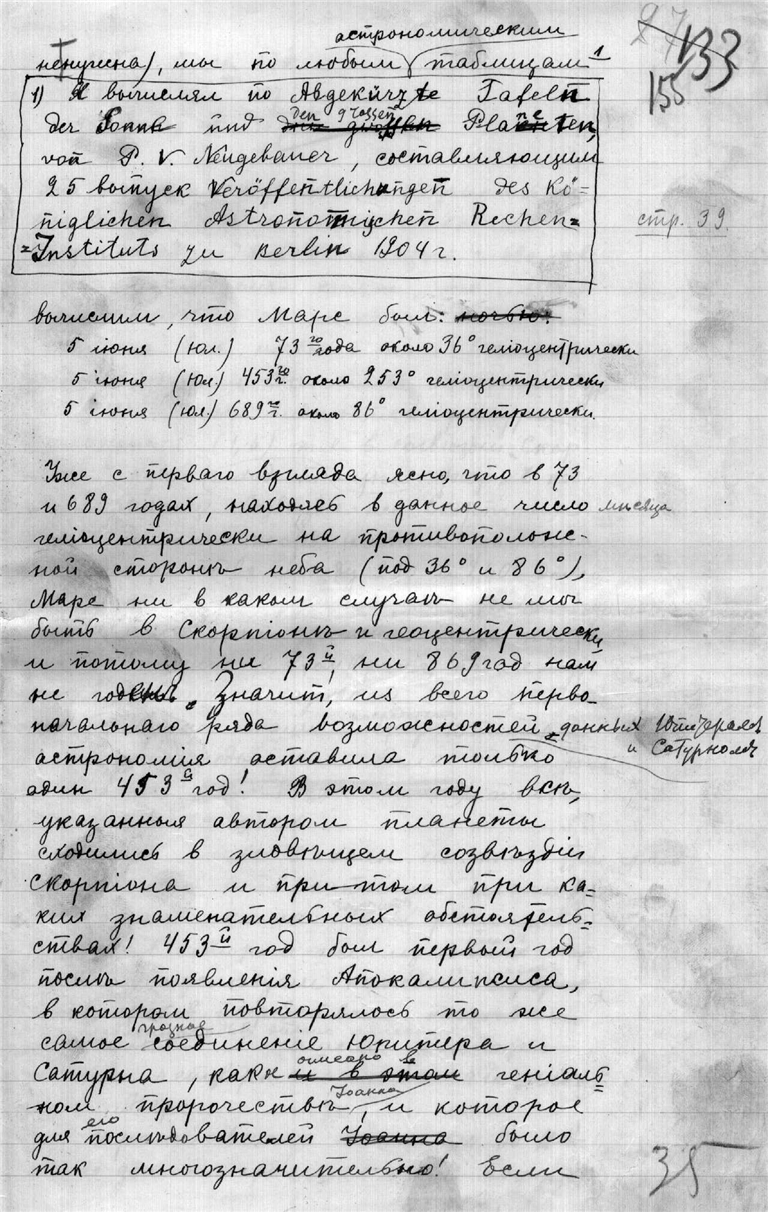 астрономическим
27 133
мы по любым таблицам 1
155
1) Я вычислял по Abgekürzte Tafeln
der Sonne und den grossen Planeten,
von P. V. Neugebauer, составляющим
25 выпуск Veröffentlichungen des Kö=
niglichen Astronomischen Rechen=
=Instituts zu Berlin 1904 г.
стр. 39
вычислим, что Марс был: ночью:
5 іюня (юл.) 73го года около 36° геліоцентрически
5 іюня (юл.) 453го г. около 253° геліоцентрически
5 іюня (юл.) 689го г. около 86° геліоцентрически.
Уже с перваго взгляда ясно, что в 73
и 689 годах, находясь в данное число мѣсяца
геліоцентрически на противополож-
ной сторонѣ неба (под 36° и 86°),
Марс ни в каком случаѣ не мог
быть в Скорпіонѣ и геоцентрически,
и потому ни 73й, ни 869 год нам
не годны. Значит, из всего перво-
начальнаго ряда возможностей, данных Юпитером
и Сатурном
астрономія оставила только
один 453й год! В этом году всѣ,
указанныя автором планеты
сходились в зловѣщем созвѣздіи
Скорпіона и при том при ка-
ких знаменательных обстоятель=
ствах! 453й год был первый год
послѣ появленія Апокалипсиса,
в котором повторялось то же
грозное
самое соединеніе Юпитера и
описано в
Сатурна, какое и в этом геніаль=
Іоанна
ном пророчествѣ, и которое
его
для послѣдователей Іоанна было
так многозначительно! Если
35